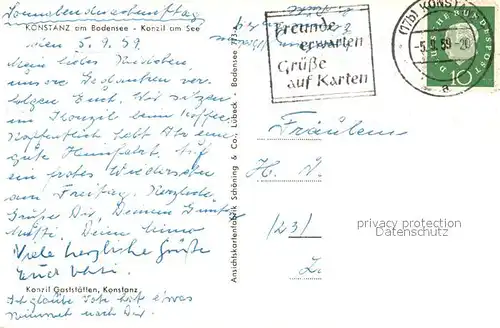 Sonnabendnachmittag
KONSTANZ am Bodensee - Konzil am See
5. 9. 59.
Mein liebes
unsere Gedanken ver-
folgen Euch. Wir sitzen
im Konzil beim Kaffee.
Hoffentlich habt Ihr eine
gute Heimfahrt. Auf
ein frohes Wiedersehen
am Freitag. Herzliche
Grüße Dir, Deinen
Mutti. Deine
Viele herzliche Grüße
Euch
Konzil Gaststätten, Konstanz
Ich glaube hat etwas
nach Dir.
Ansichtskartenfabrik Schöning & Co., Lübeck · Bodensee 773
Freunde
erwarten
Grüße
auf Karten
(17b) KONSTANZ
-5.9.59-20
a
DEUTSCHE BUNDESPOST
10
Fräulein
H. V.
(23)
L.
privacy protection
Datenschutz